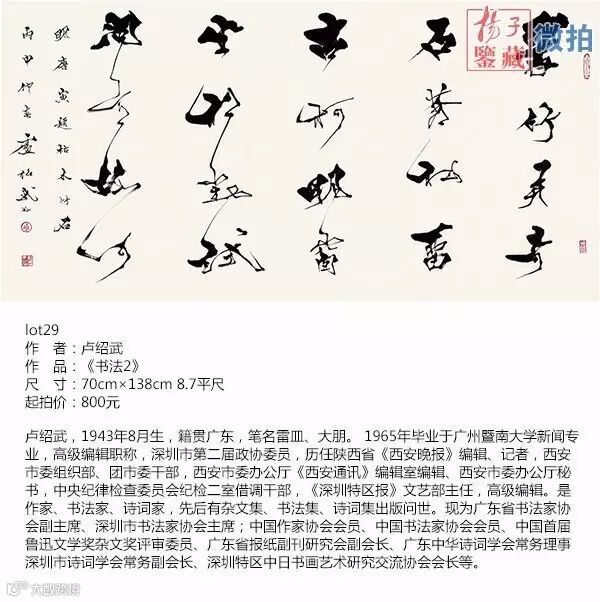 揚子
鑒藏
微拍
明唐寅题枯木竹石
丙申仲春 卢绍武
lot29
作 者：卢绍武
作 品：《书法2》
尺 寸：70cm×138cm 8.7平尺
起拍价：800元
卢绍武，1943年8月生，籍贯广东，笔名雷皿、大朋。 1965年毕业于广州暨南大学新闻专
业，高级编辑职称，深圳市第二届政协委员，历任陕西省《西安晚报》编辑、记者，西安
市委组织部、团市委干部，西安市委办公厅《西安通讯》编辑室编辑、西安市委办公厅秘
书，中央纪律检查委员会纪检二室借调干部，《深圳特区报》文艺部主任，高级编辑。是
作家、书法家、诗词家，先后有杂文集、书法集、诗词集出版问世。现为广东省书法家协
会副主席、深圳市书法家协会主席；中国作家协会会员、中国书法家协会会员、中国首届
鲁迅文学奖杂文奖评审委员、广东省报纸副刊研究会副会长、广东中华诗词学会常务理事
深圳市诗词学会常务副会长、深圳特区中日书画艺术研究交流协会会长等。
大数跨境